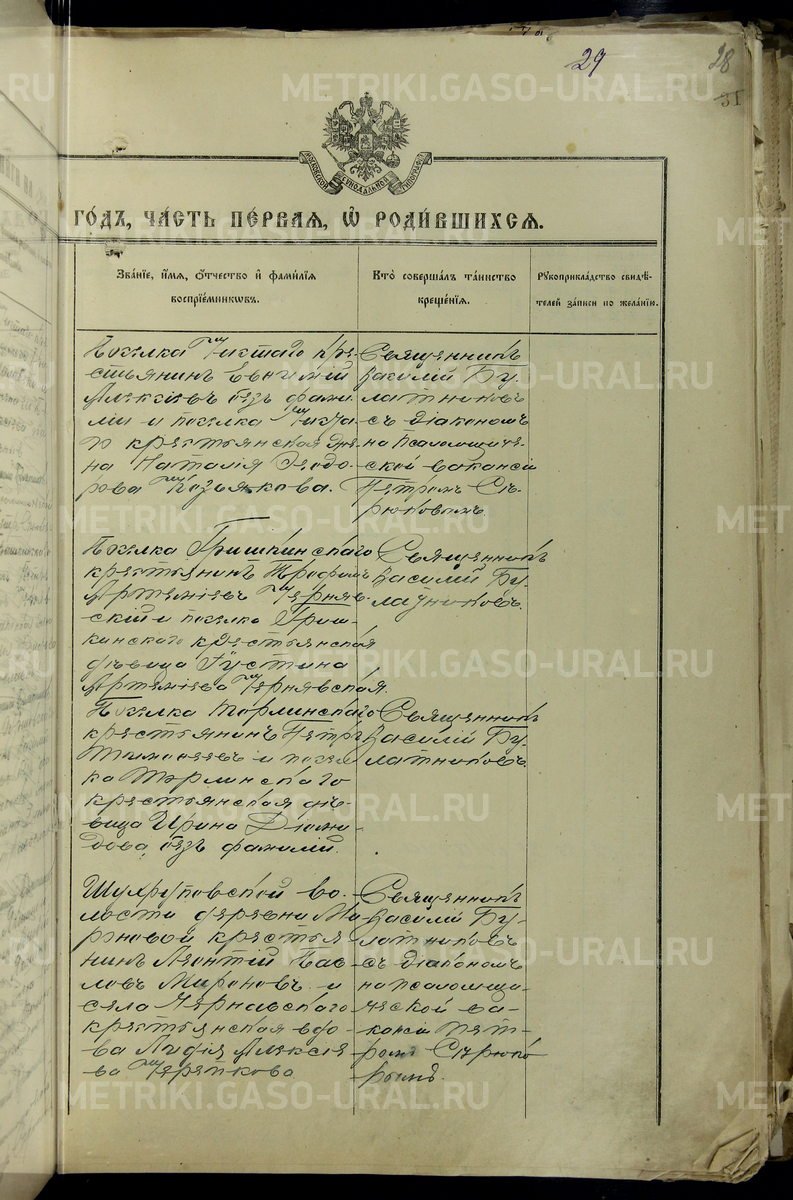 29
28
31
МОСКОВСКОЙ СѴНОДАЛЬНОЙ ТИПОГРАФІИ
ГО́ДЪ, ЧА́СТЬ ПЕ́РВАѦ, Ѡ҆ РОДИ́ВШИХСѦ.
Зва́ніе, и҆́мѧ, ѻ҆́тчество и҆ фами́лїѧ воспрїе́мникѡвъ.
Кто̀ соверша́лъ та́инство креще́нїѧ.
Рꙋкоприкла́дство свидѣ́телей за́писи по жела́нїю.
Поселка Чистаго кре-
стьянинъ Евфимій
Алексѣевъ безъ фами-
ліи и поселка Чиста-
го крестьянская же-
на Наталія Ѳеодо-
рова Козьякова.
Священникъ
Василій Бу-
латниковъ
съ діакономъ
на псаломщиче-
ской вакансіи
Петромъ Сѣ-
рюковымъ.
Поселка Гришкинскаго
крестьянинъ Трофимъ
Артеміевъ Черняв-
скій и поселка Гриш-
кинскаго крестьянская
дѣвица Іустина
Артеміева Чернявская.
Священникъ
Василій Бу-
латниковъ.
Поселка Торлинскаго
крестьянинъ Петръ
Тимоѳеевъ и посел-
ка Торлинскаго
крестьянская дѣ-
вица Ирина Діоми-
дова, безъ фамиліи.
Священникъ
Василій Бу-
латниковъ.
волости деревни
крестья
нинъ Леонтій Пав-
ловъ Мироновъ и
села Чернавскаго
крестьянская вдо-
ва Лидія Алексѣе
ва Черепкова
Священникъ
Василій Бу-
латниковъ
съ діакономъ
на псаломщи-
ческой ва-
кансіи Пет-
ромъ Сѣрюко
вымъ.
METRIKI.GASO-URAL.RU